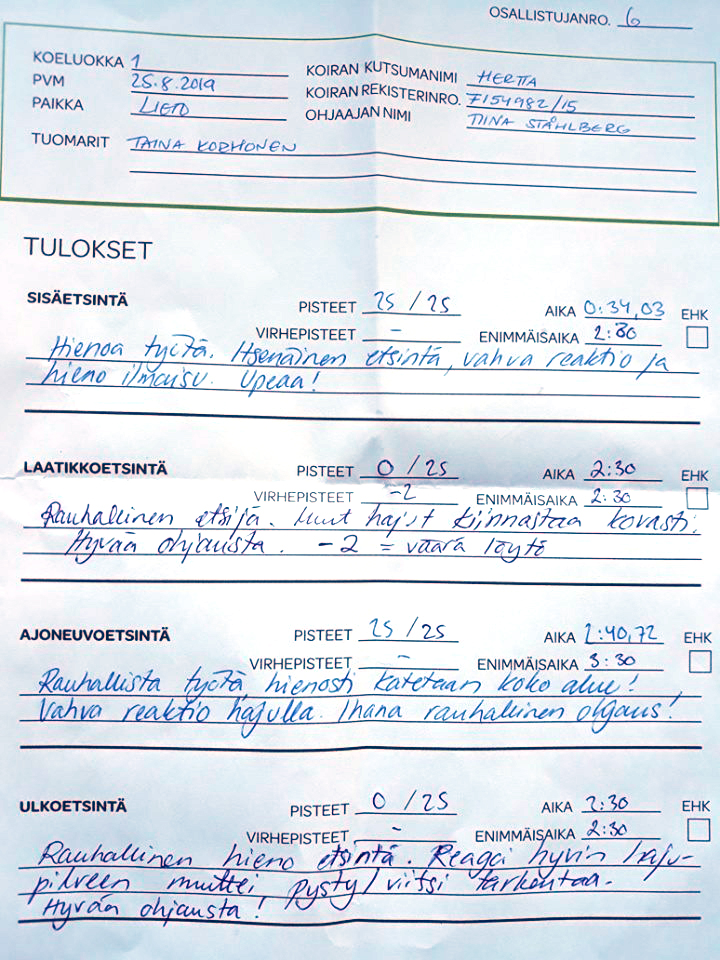 OSALLISTUJANRO. 6
KOELUOKKA 1
PVM 25.8.2019
PAIKKA LIETO
KOIRAN KUTSUMANIMI HERTTA
KOIRAN REKISTERINRO. FI54982/15
OHJAAJAN NIMI TIINA STÅHLBERG
TUOMARIT TAINA KORHONEN
TULOKSET
SISÄETSINTÄ PISTEET 25 / 25 AIKA 0:34,03 EHK
VIRHEPISTEET – ENIMMÄISAIKA 2:30
Hienoa työtä. Itsenäinen etsintä, vahva reaktio ja
hieno ilmaisu. Upeaa!
LAATIKKOETSINTÄ PISTEET 0 / 25 AIKA 2:30 EHK
VIRHEPISTEET -2 ENIMMÄISAIKA 2:30
Rauhallinen etsijä. Muut hajut kiinnostaa kovasti.
Hyvää ohjausta. -2 = väärä löytö
AJONEUVOETSINTÄ PISTEET 25 / 25 AIKA 2:40,72 EHK
VIRHEPISTEET – ENIMMÄISAIKA 3:30
Rauhallista työtä, hienosti katetaan koko alue!
Vahva reaktio hajulla. Ihana rauhallinen ohjaus!
ULKOETSINTÄ PISTEET 0 / 25 AIKA 2:30 EHK
VIRHEPISTEET – ENIMMÄISAIKA 2:30
Rauhallinen hieno etsintä. Reagoi hyvin haju-
pilveen muttei pysty/viitsi tarkentaa.
Hyvää ohjausta!